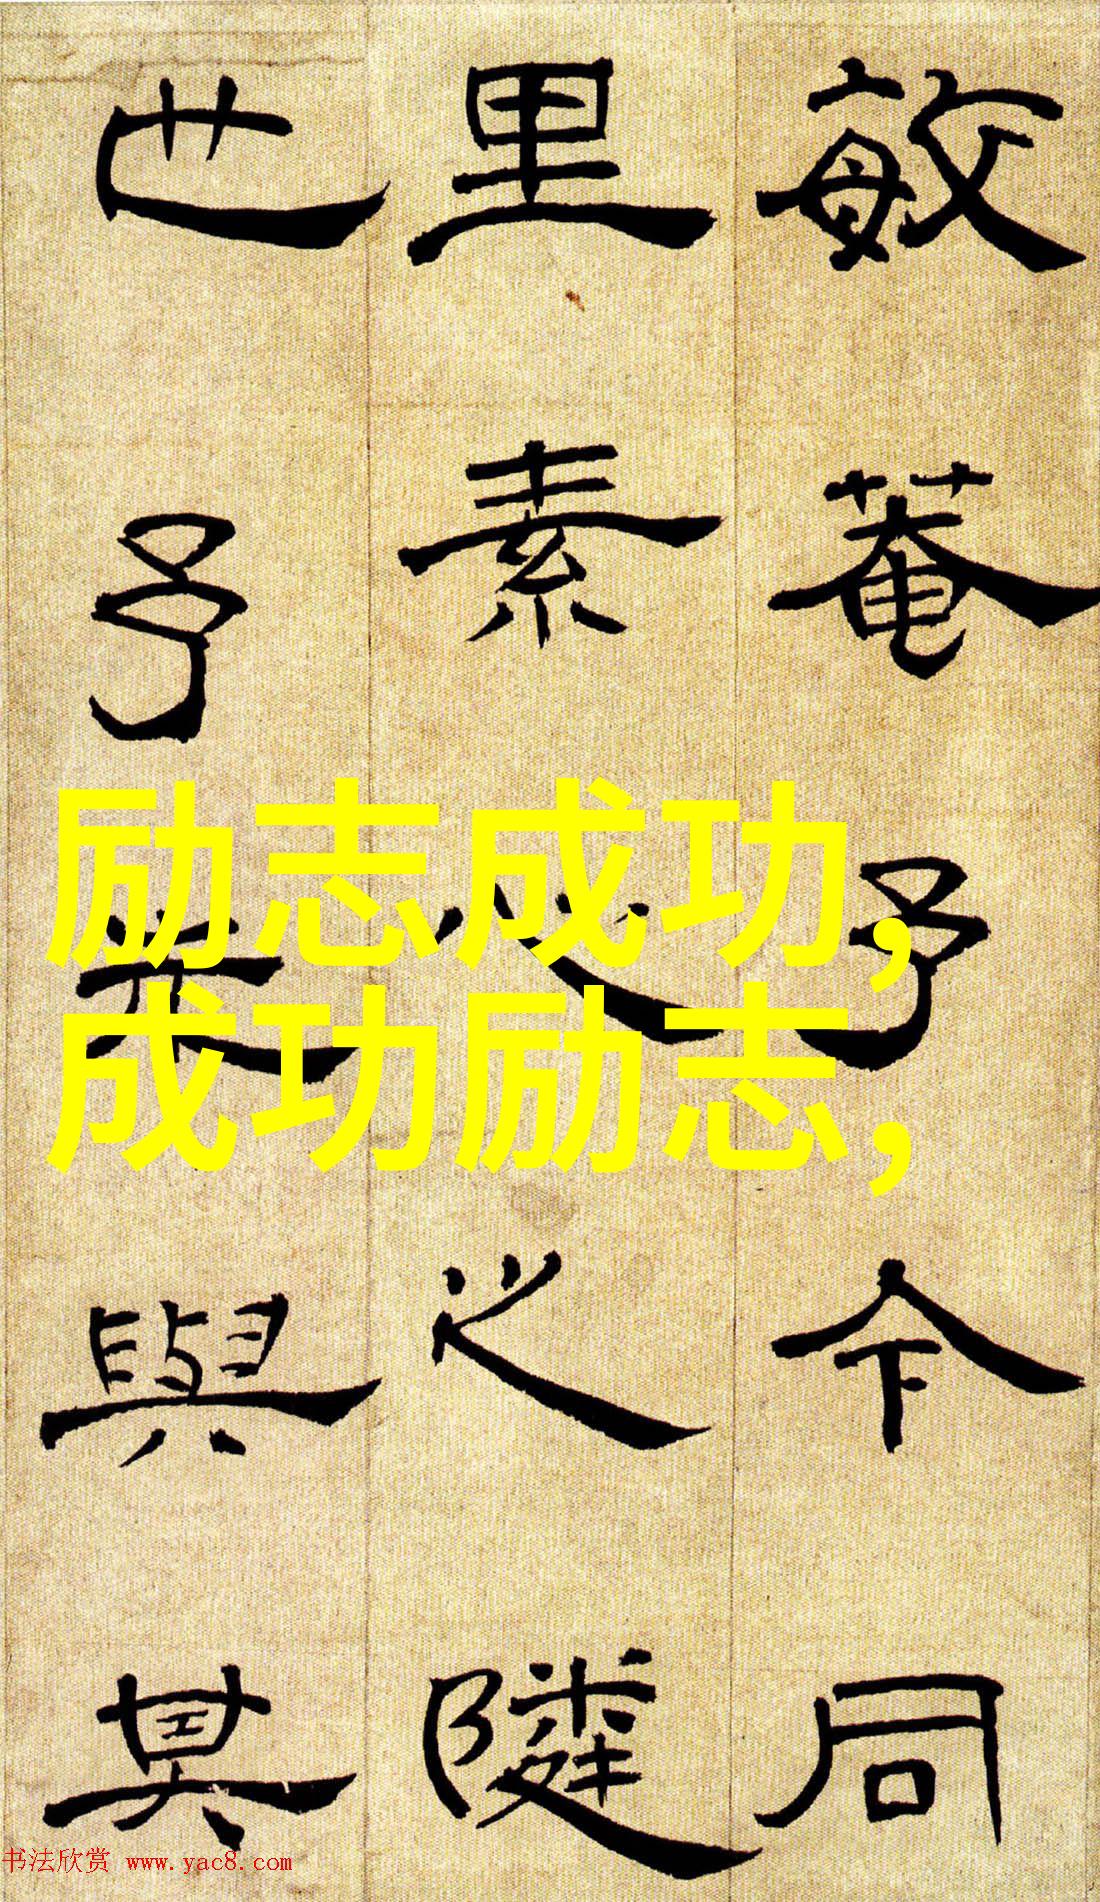 敏菴予今同
里素心之隣
也予與其
励志成功,
成功励志,
书法欣赏 www.yac8.com